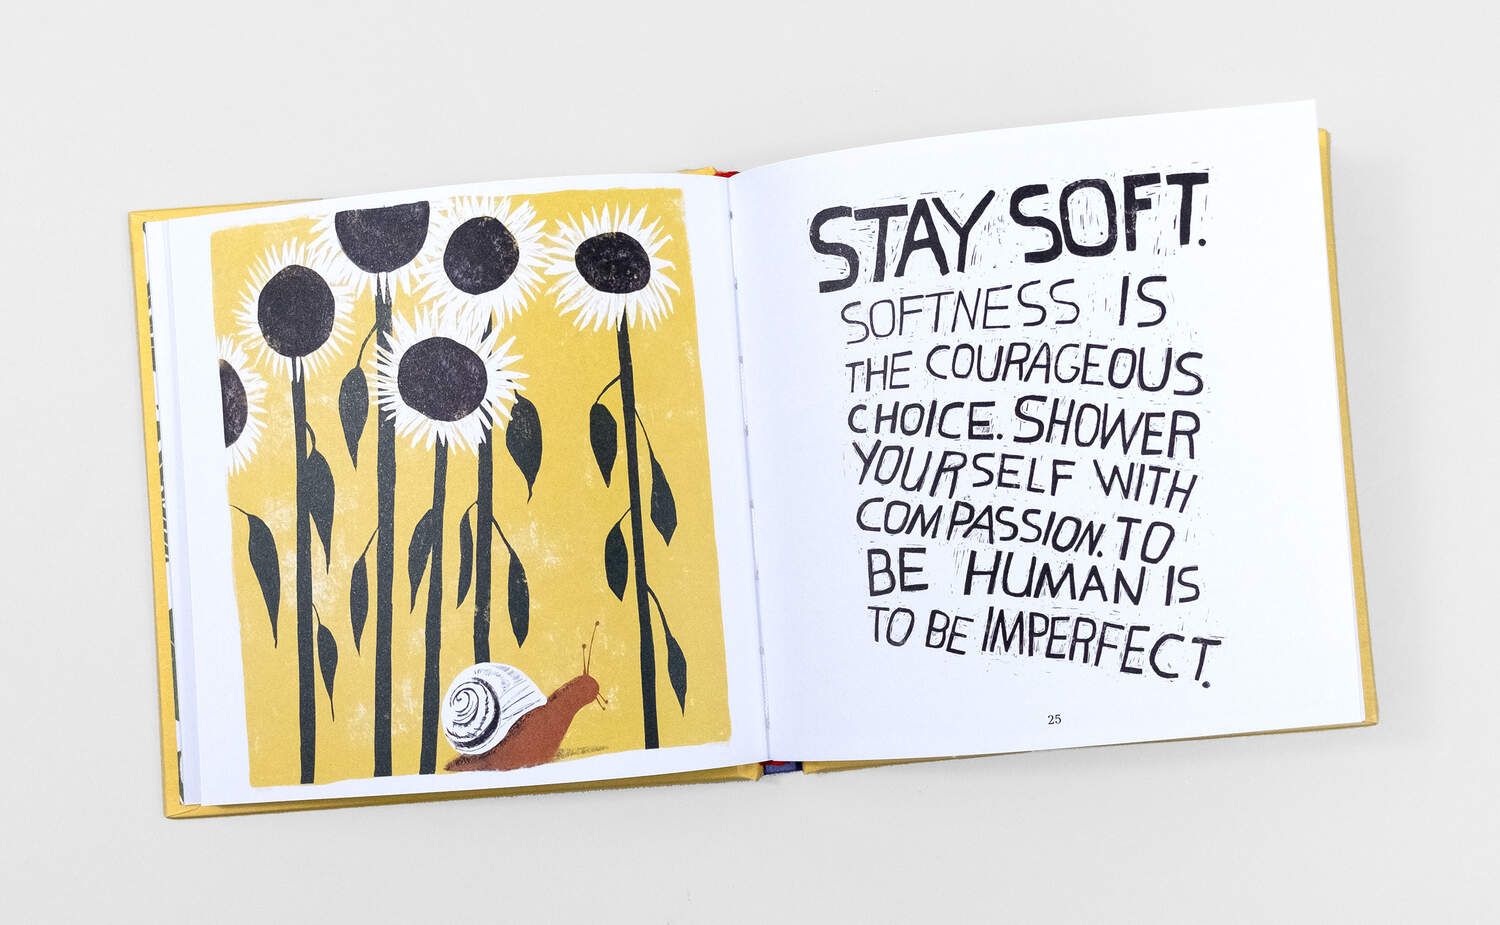 STAY SOFT.
SOFTNESS IS
THE COURAGEOUS
CHOICE. SHOWER
YOURSELF WITH
COMPASSION. TO
BE HUMAN IS
TO BE IMPERFECT.
25